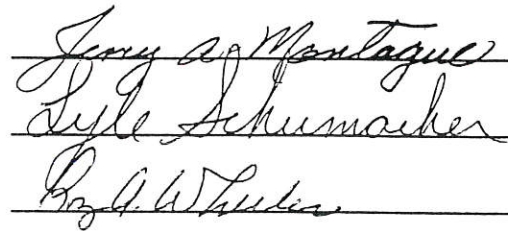 Jerry A. Montague
Lyle Schumacher
Roy A. Wheeler